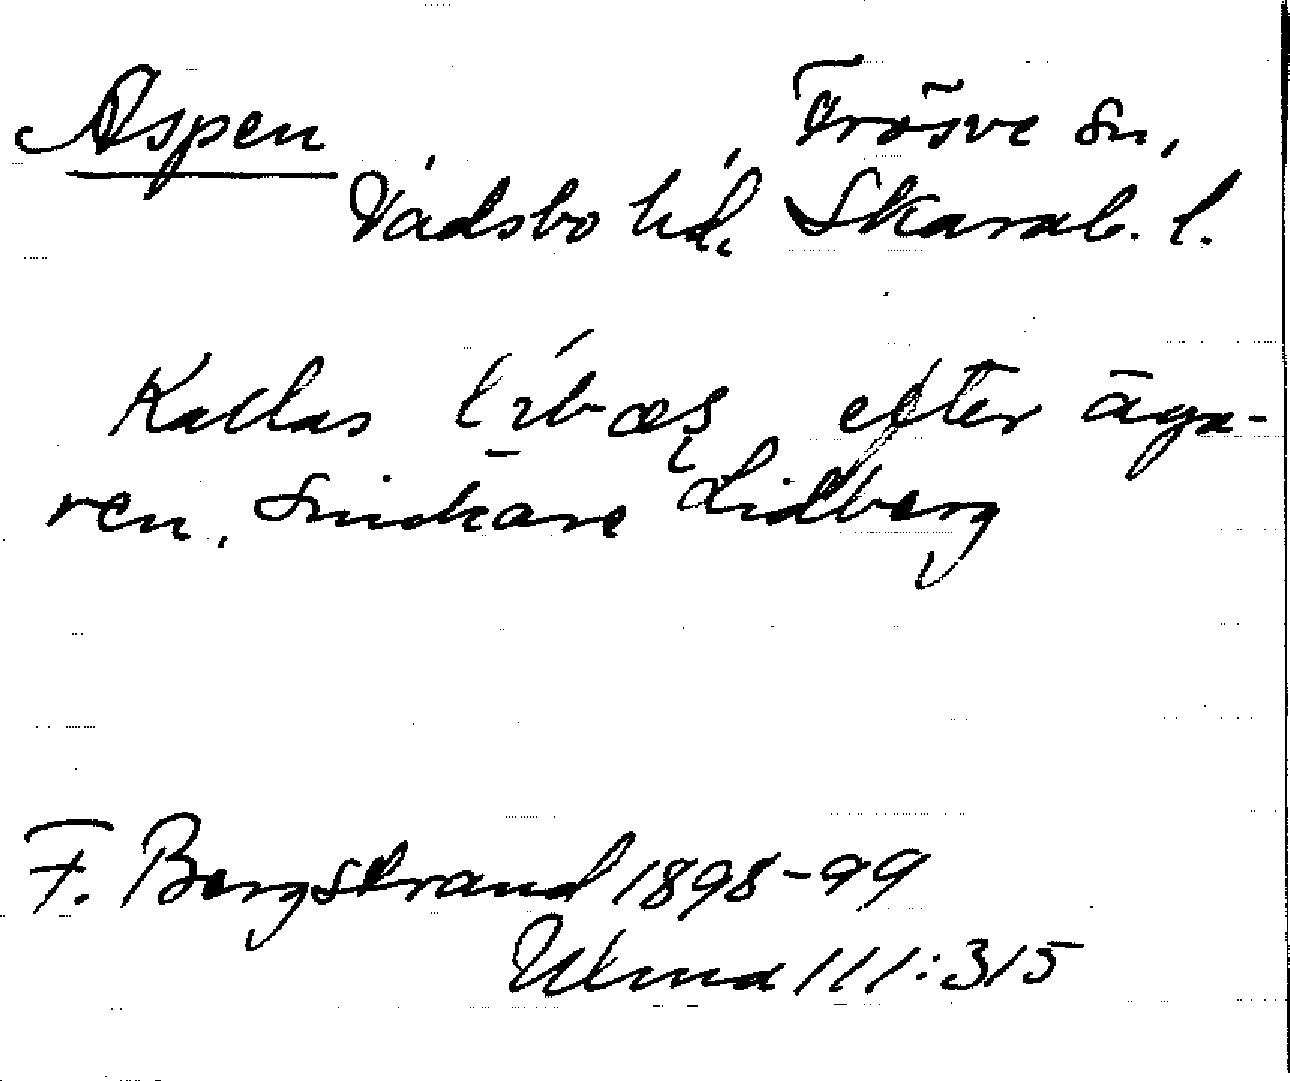 Aspen Frösve sn,
Vadsbo hd, Skarab. l.
Kallas efter äga-
ren, snickare Lidberg
F. Bergstrand 1898-99
Ulma 111:315